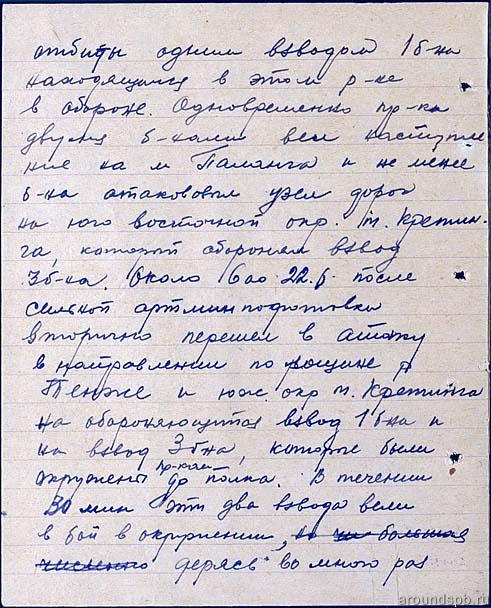 отбиты одним взводом 1 б-на
находящимся в этом р-не
в обороне. Одновременно пр-к
двумя б-нами вел наступле
ние на м Паланга и не менее
б-на атаковывал узел дорог
на юго восточной окр. м. Кретин.
га, который оборонял взвод
3 б-на. Около 6 00 22.6 после
сильной артминподготовки
вторично перешел в атаку
в направлении по лощине р
Тенже и юж. окр м. Кретинга
на обороняющийся взвод 1 б-на и
на взвод 3 б-на, которые были
окружены пр-ком до полка. В течении
30 мин эти два взвода вели
в бой в окружении, но не большая
численно дерясь во много раз
aroundspb.ru